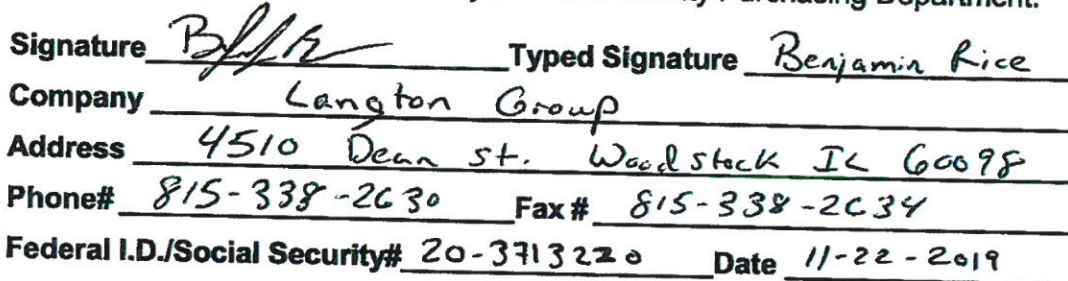 Purchasing Department.
Signature Typed Signature Benjamin Rice
Company Langton Group
Address 4510 Dean St. Woodstock IL 60098
Phone# 815-338-2630 Fax # 815-338-2634
Federal I.D./Social Security# 20-3713220 Date 11-22-2019